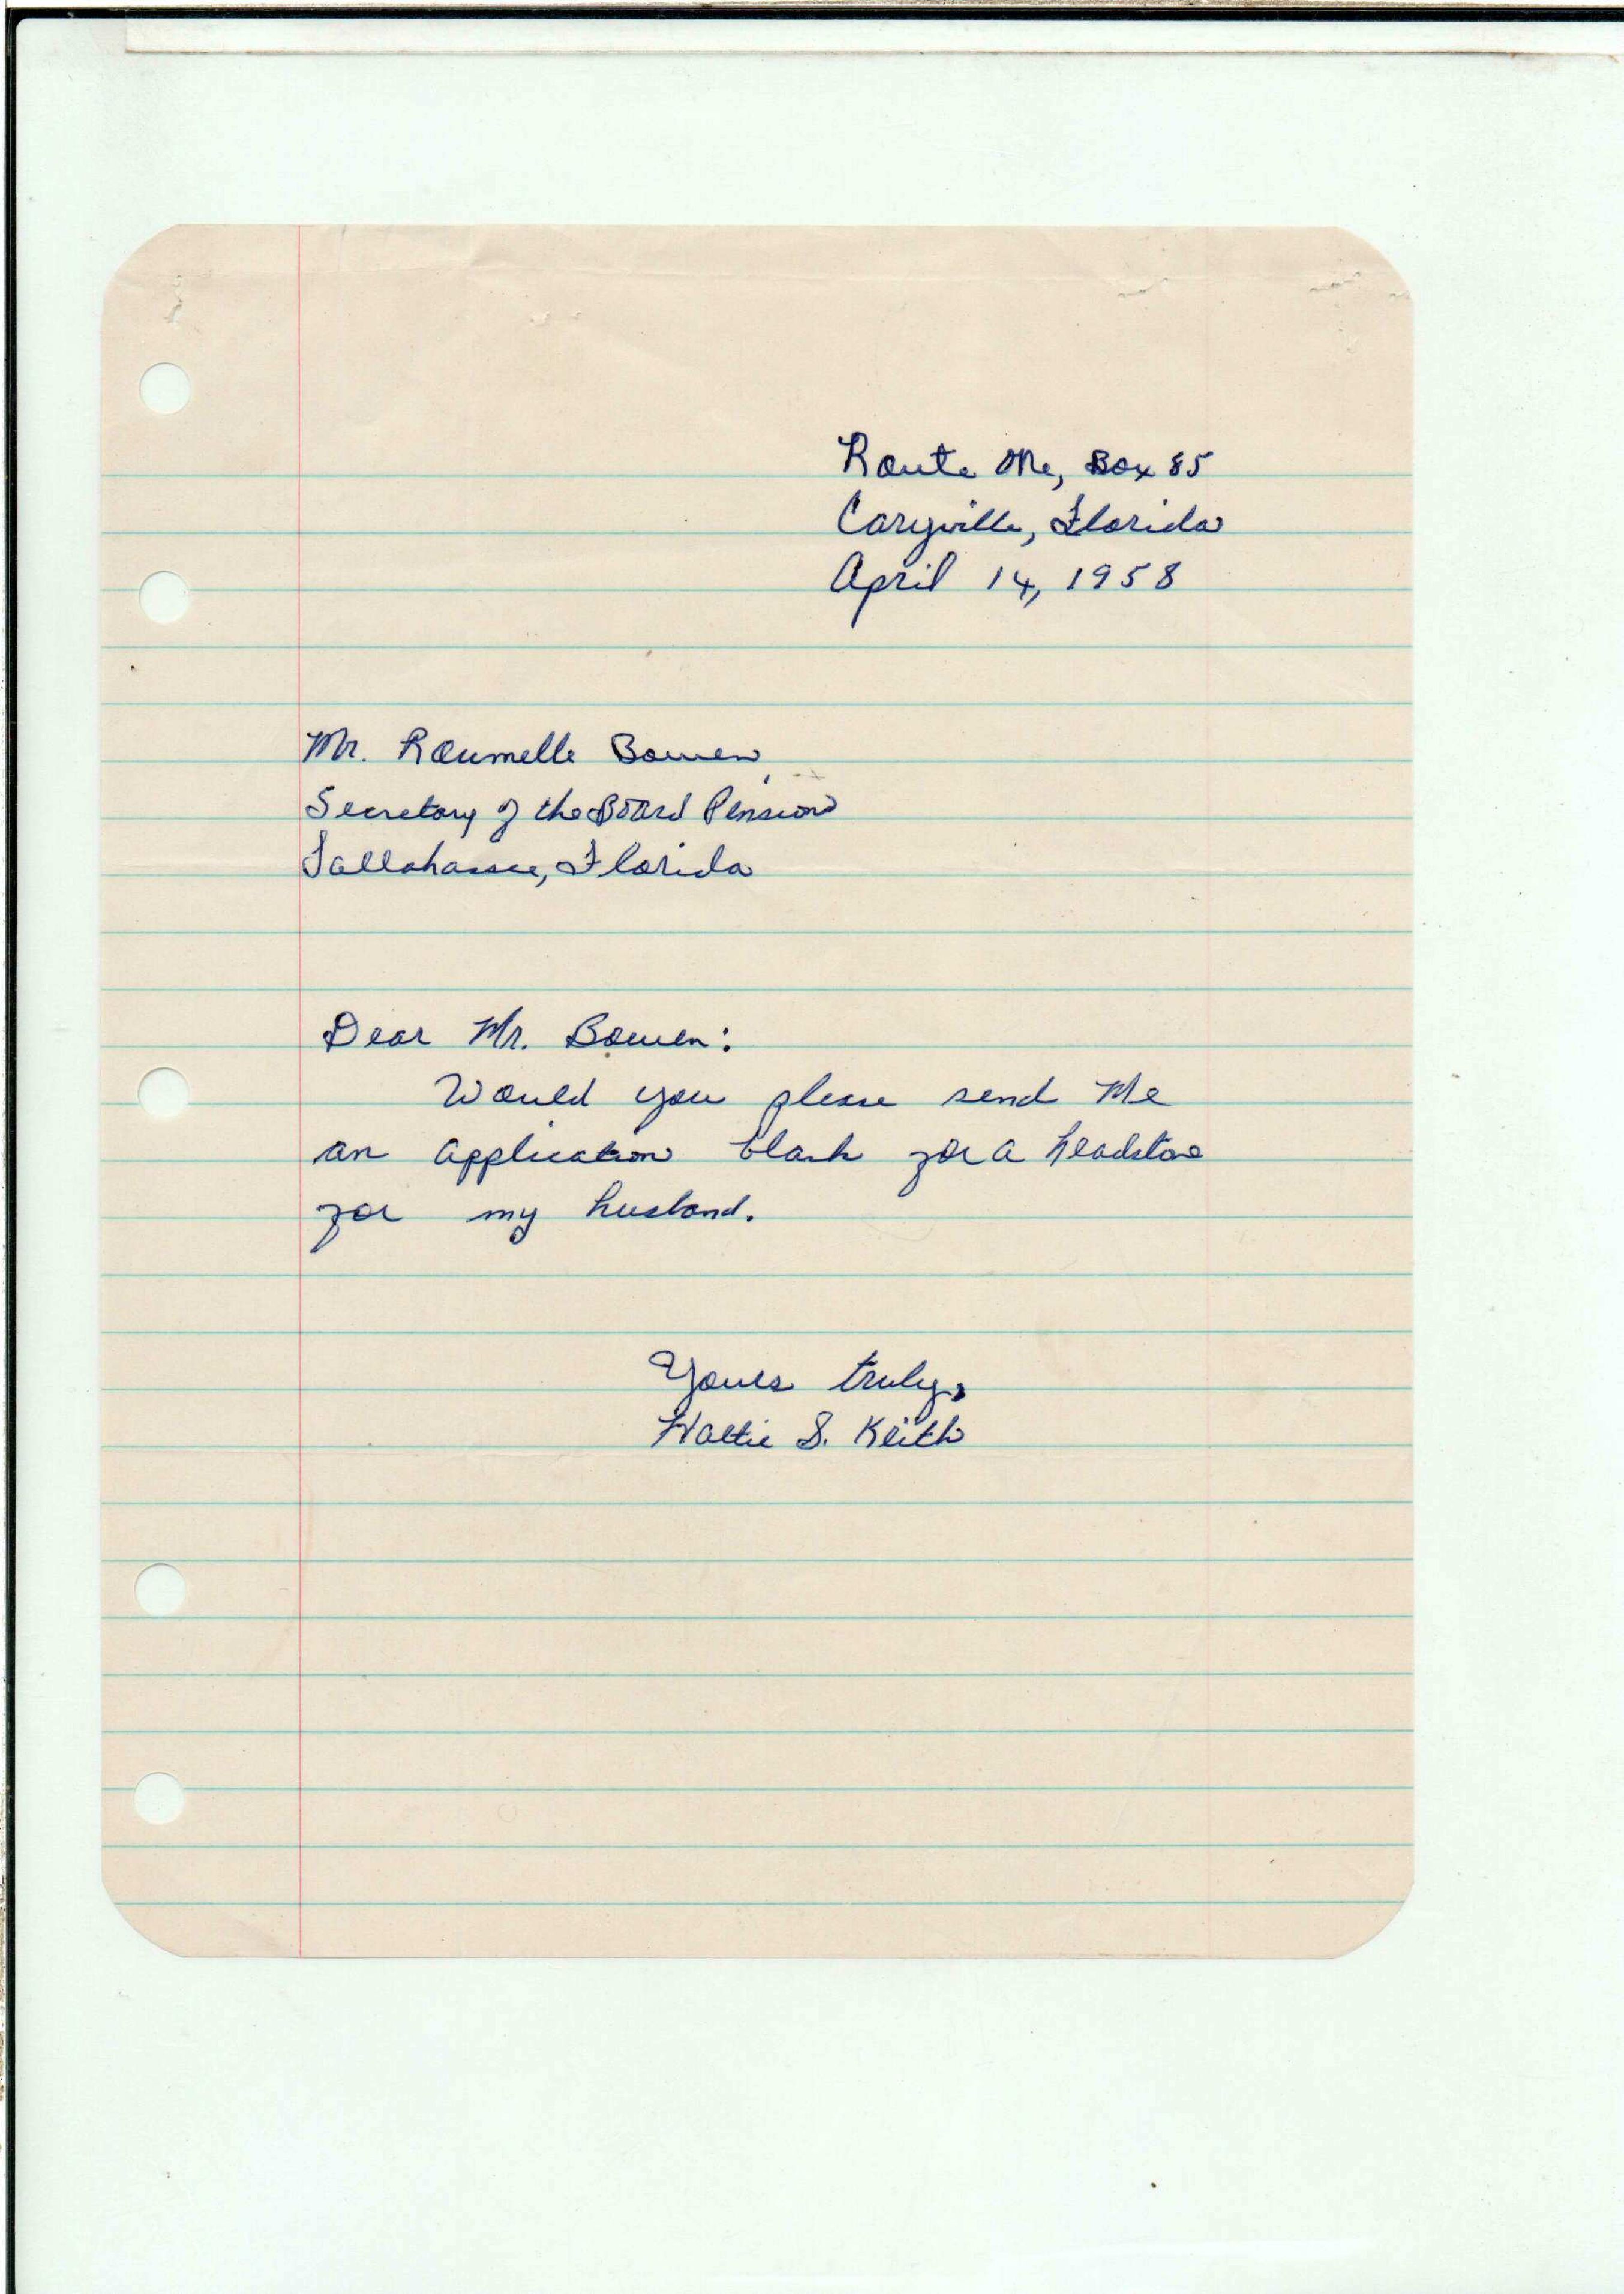 Route One, Box 85
Caryville, Florida
April 14, 1958
Mr. Roumelle Bowen,
Secretary of the Board Pension
Tallahassee, Florida
Dear Mr. Bowen:
Would you please send me
an application blank for a headstone
for my husband.
Yours truly,
Hattie S. Keith